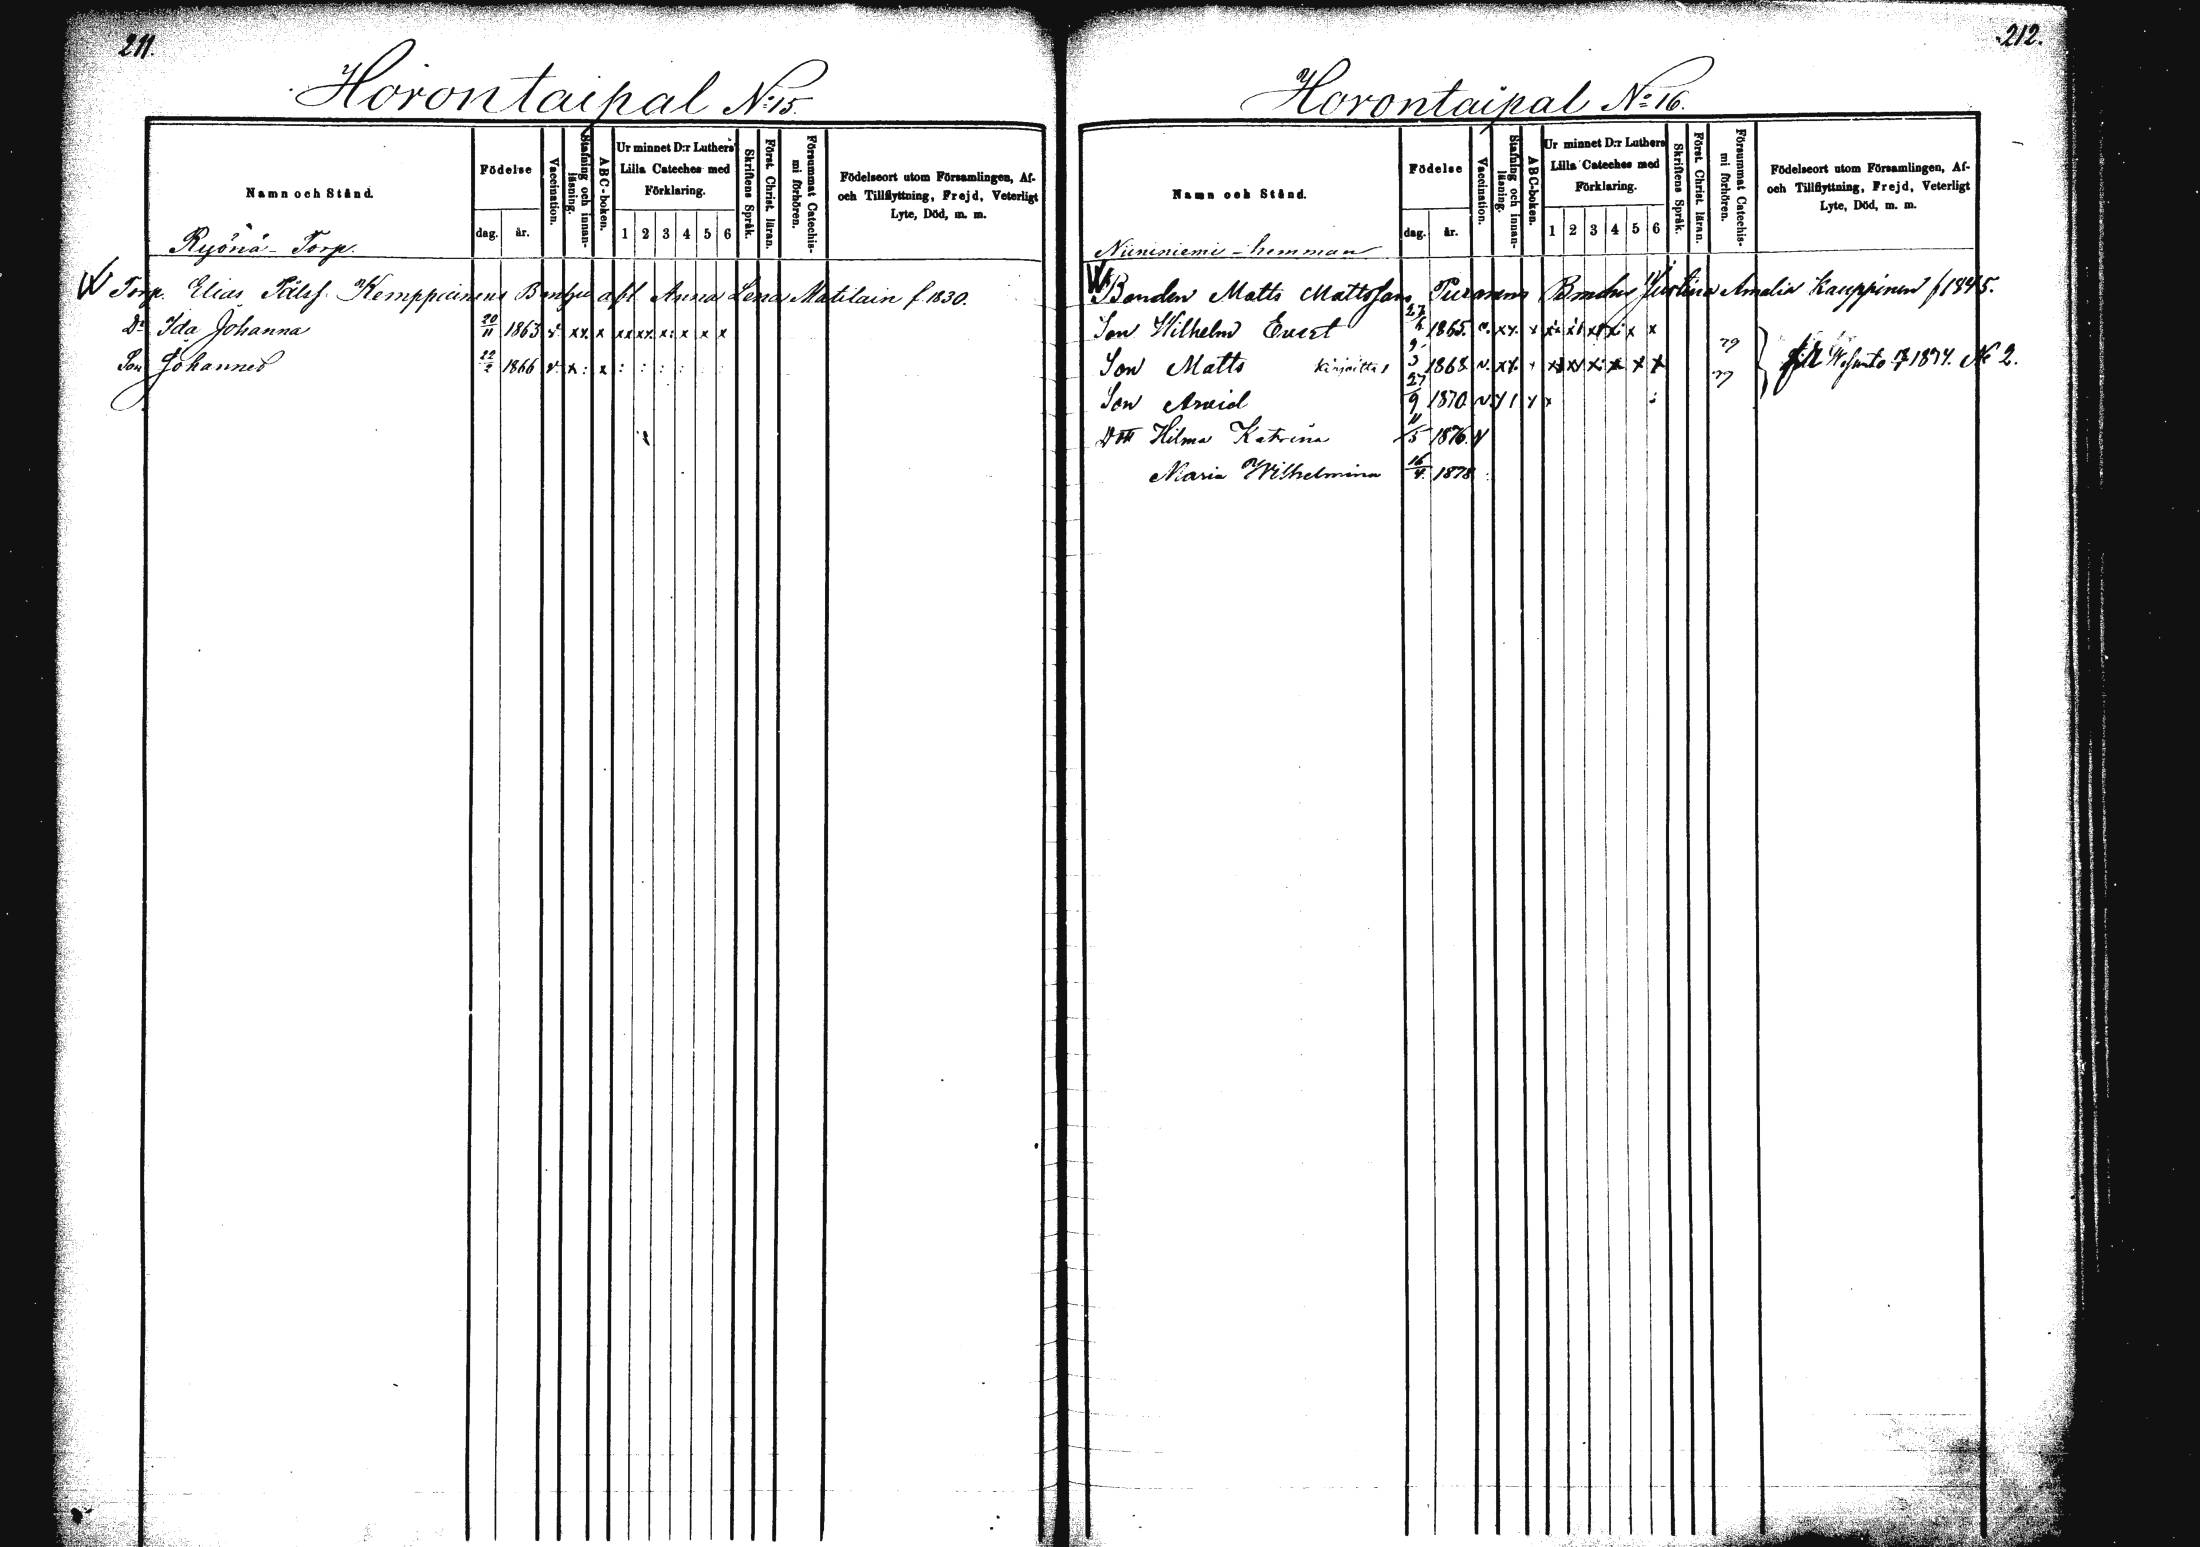 211.
Horontaipal No 15.
Namn och Stånd.
Födelse
dag. år.
Vaccination.
Stafning och innanläsning.
ABC-boken.
Ur minnet D:r Luthers
Lilla Cateches med
Förklaring.
1 2 3 4 5 6
Skriftens Språk.
Först. Christ. läran.
Försummat Catechismi förhören.
Födelseort utom Församlingen, Af-
och Tillflyttning, Frejd, Veterligt
Lyte, Död, m. m.
Ryönä - Torp.
Torp. Elias Pålsf. Kemppainens Anna Lena Matilain f. 1830.
Dr Ida Johanna 20/11 1863 v. xx. x xx xx. x: x x x
Son Johannes 22/2 1866 v. x: x: : : : : :
212.
Horontaipal No 16.
Namn och Stånd.
Födelse
dag. år.
Vaccination.
Stafning och innanläsning.
ABC-boken.
Ur minnet D:r Luthers
Lilla Cateches med
Förklaring.
1 2 3 4 5 6
Skriftens Språk.
Först. Christ. läran.
Försummat Catechismi förhören.
Födelseort utom Församlingen, Af-
och Tillflyttning, Frejd, Veterligt
Lyte, Död, m. m.
Niininiemi - hemman
Bonden Matts Mattsson Puranens Justina Amalia Kauppinen f 1845.
Son Wilhelm Evert 1865.
Son Matts 1868 v. xx.
Son Arvid 27/9 1870
Dttr Hilma Katrina 11/5 1876 v
Maria Wilhelmina 16/4 1878
79
77
1877. No 2.